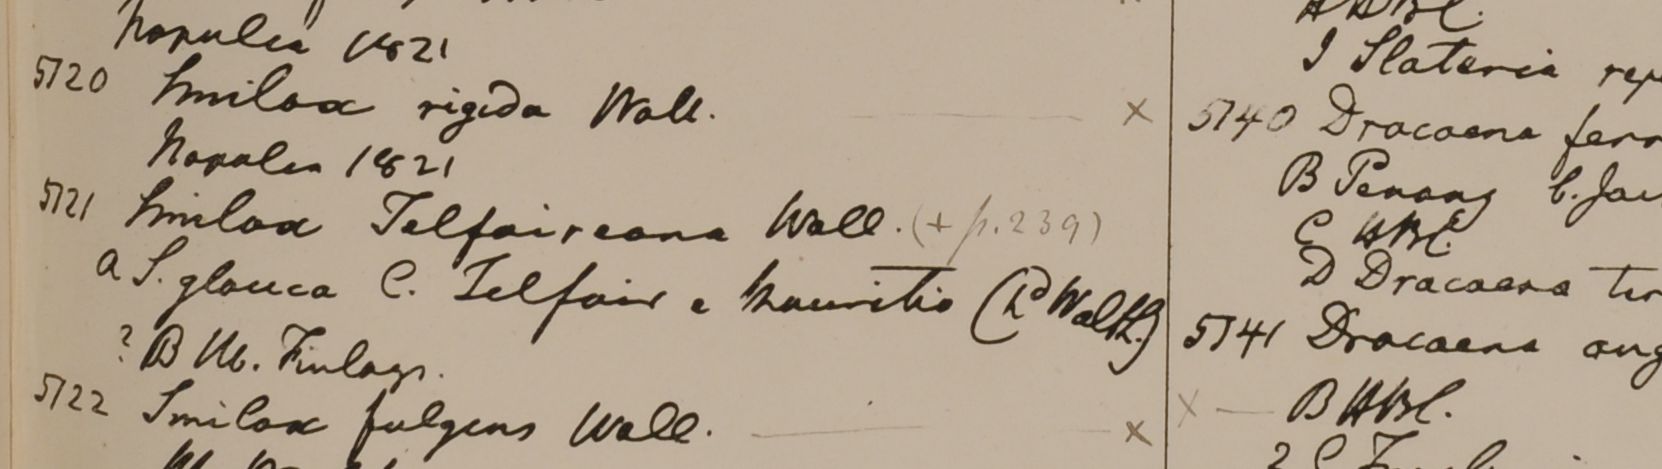 Napalia 1821
5120 Smilax rigida Wall. ——— ×
Napalia 1821
5121 Smilax Telfaireana Wall. (+ p. 239)
a S. glauca C. Telfair e Mauritio (hd Wallh.)
? B Hb. Finlays.
5122 Smilax fulgens Wall. ——— ×
HBC.
J Slateria
5140 Dracaena
B Penang
C HBC.
D Dracaena ter
5141 Dracaena ang
× — B HBC.